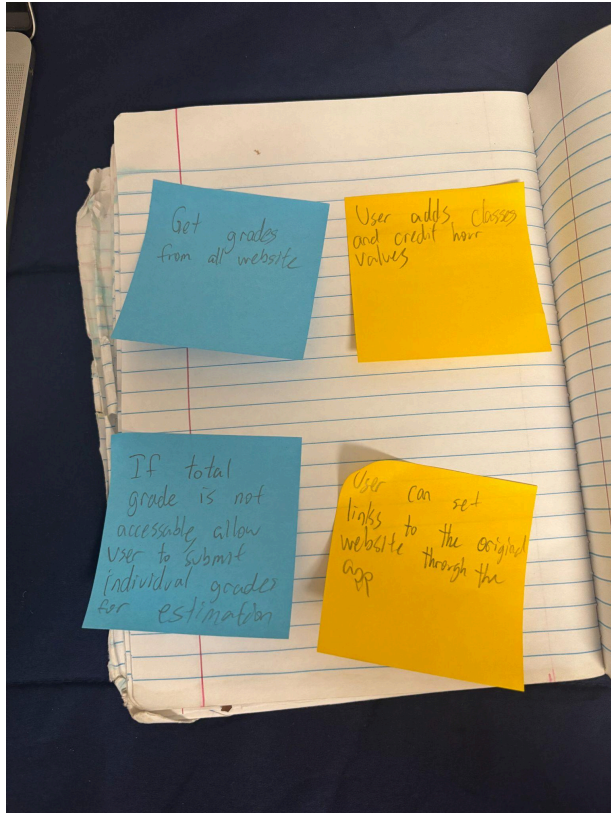 Get grades
from all website
User adds classes
and credit hour
values
If total
grade is not
accessable, allow
user to submit
individual grades
for estimation
User can set
links to the original
website through the
app